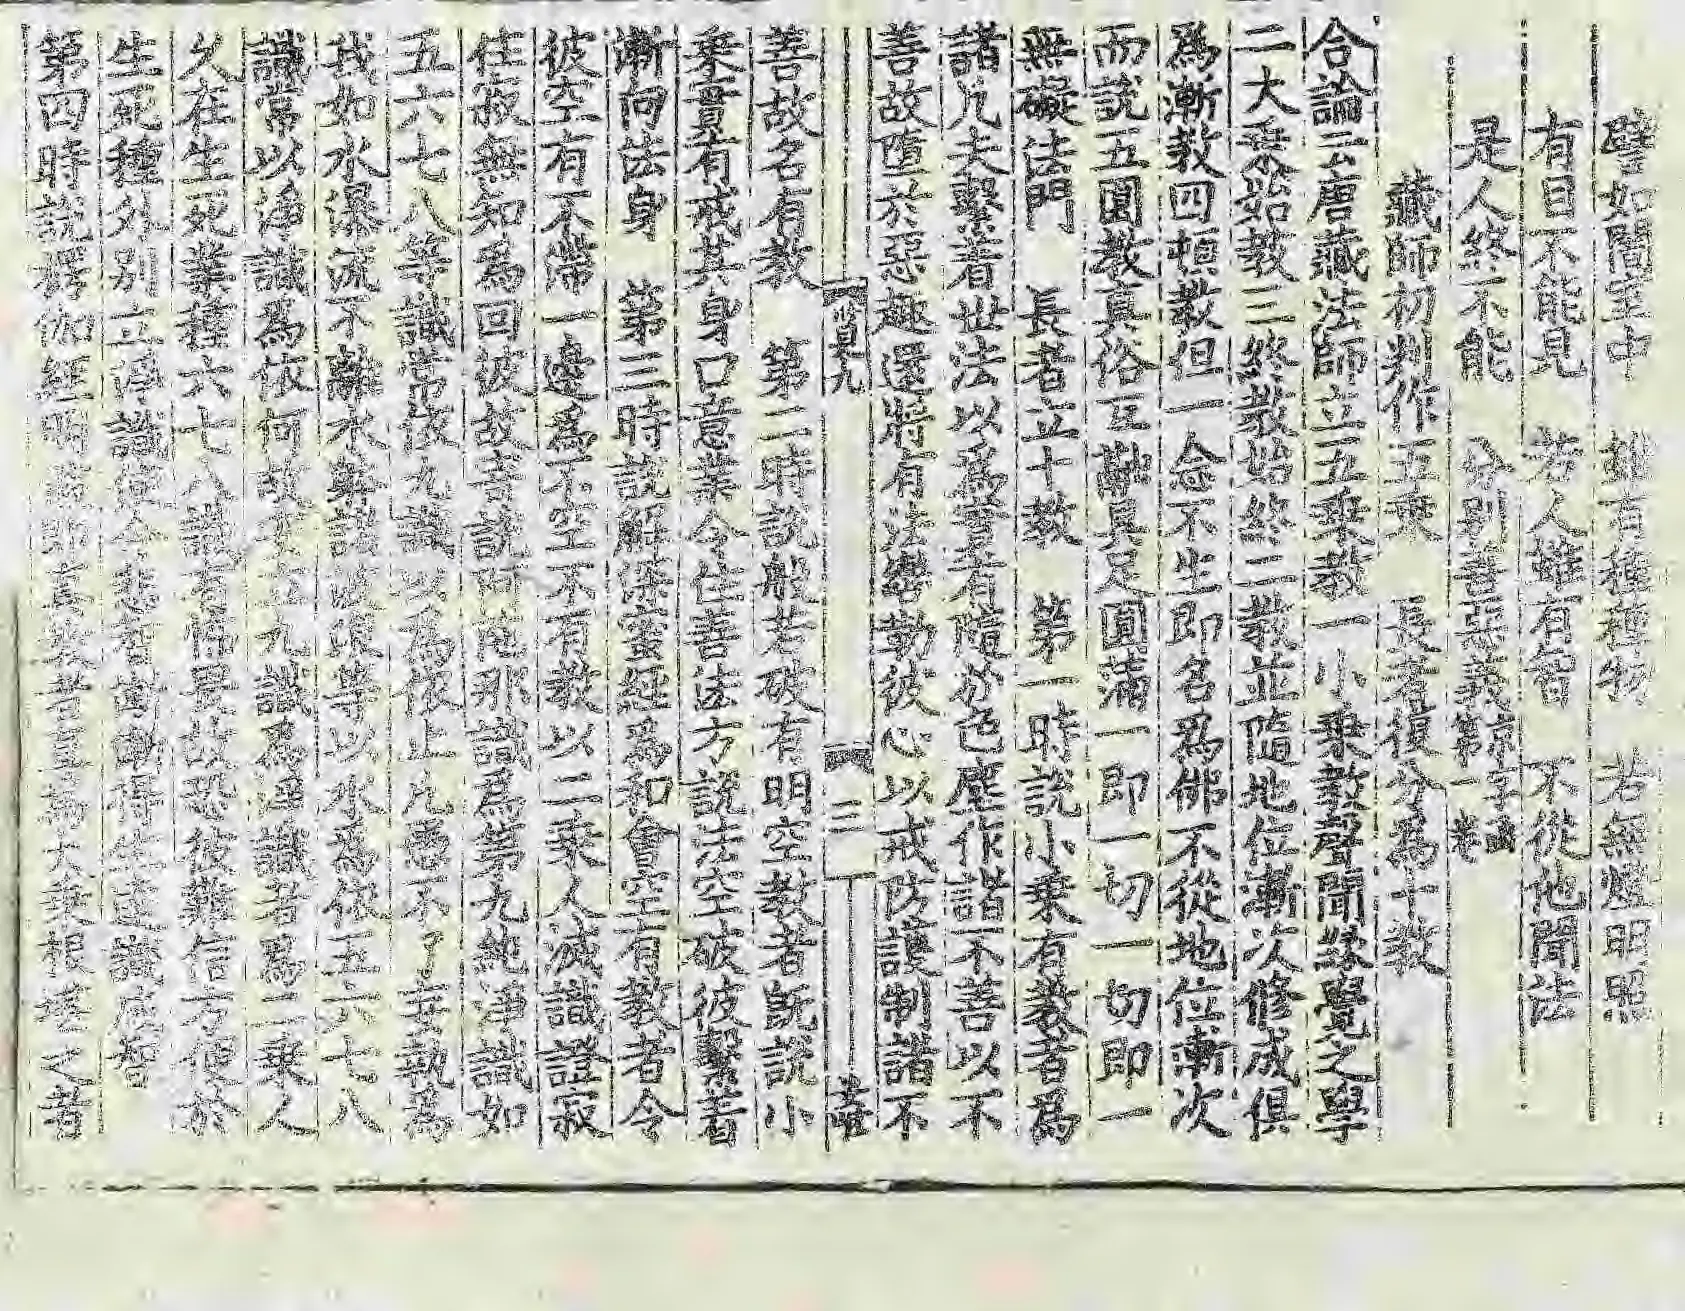 譬如闇室中　雖有種種物　若無燈明照
有目不能見　若人雖有智　不從他聞法
是人終不能　分別善惡義
藏師初判作五乘　長者復分為十教
合論云唐藏法師立五乘教一小乘教聲聞緣覺之學
二大乘始教三終教始終二教並隨地位漸次修成俱
為漸教四頓教但一念不生即名為佛不從地位漸次
而說五圓教真俗互融具足圓滿一即一切一切即一
無礙法門　長者立十教　第一時說小乘有教者為
諸凡夫繫着世法以為實有隨於色塵作諸不善以不
善故墮於惡趣還將有法轡勒彼心以戒防護制諸不
三
善故名有教　第二時說般若破有明空教者既說小
乘實有戒其身口意業令住善法方說法空破彼繫著
漸向法身　第三時說解深密經為和會空有教者令
彼空有不滯一邊為不空不有教以二乘人滅識證寂
住寂無知為回彼故言說阿陀那識為第九純淨識如
五六七八等識常依九識以為依止凡愚不了妄執為
我如水瀑流不離水體諸波浪等以水為依五六七八
識常以淨識為依何故安立九識為淨識者為二乘人
久在生死業種六七八識有怖畏故恐彼難信方便於
生死種外別立淨識
第四時說楞伽經明